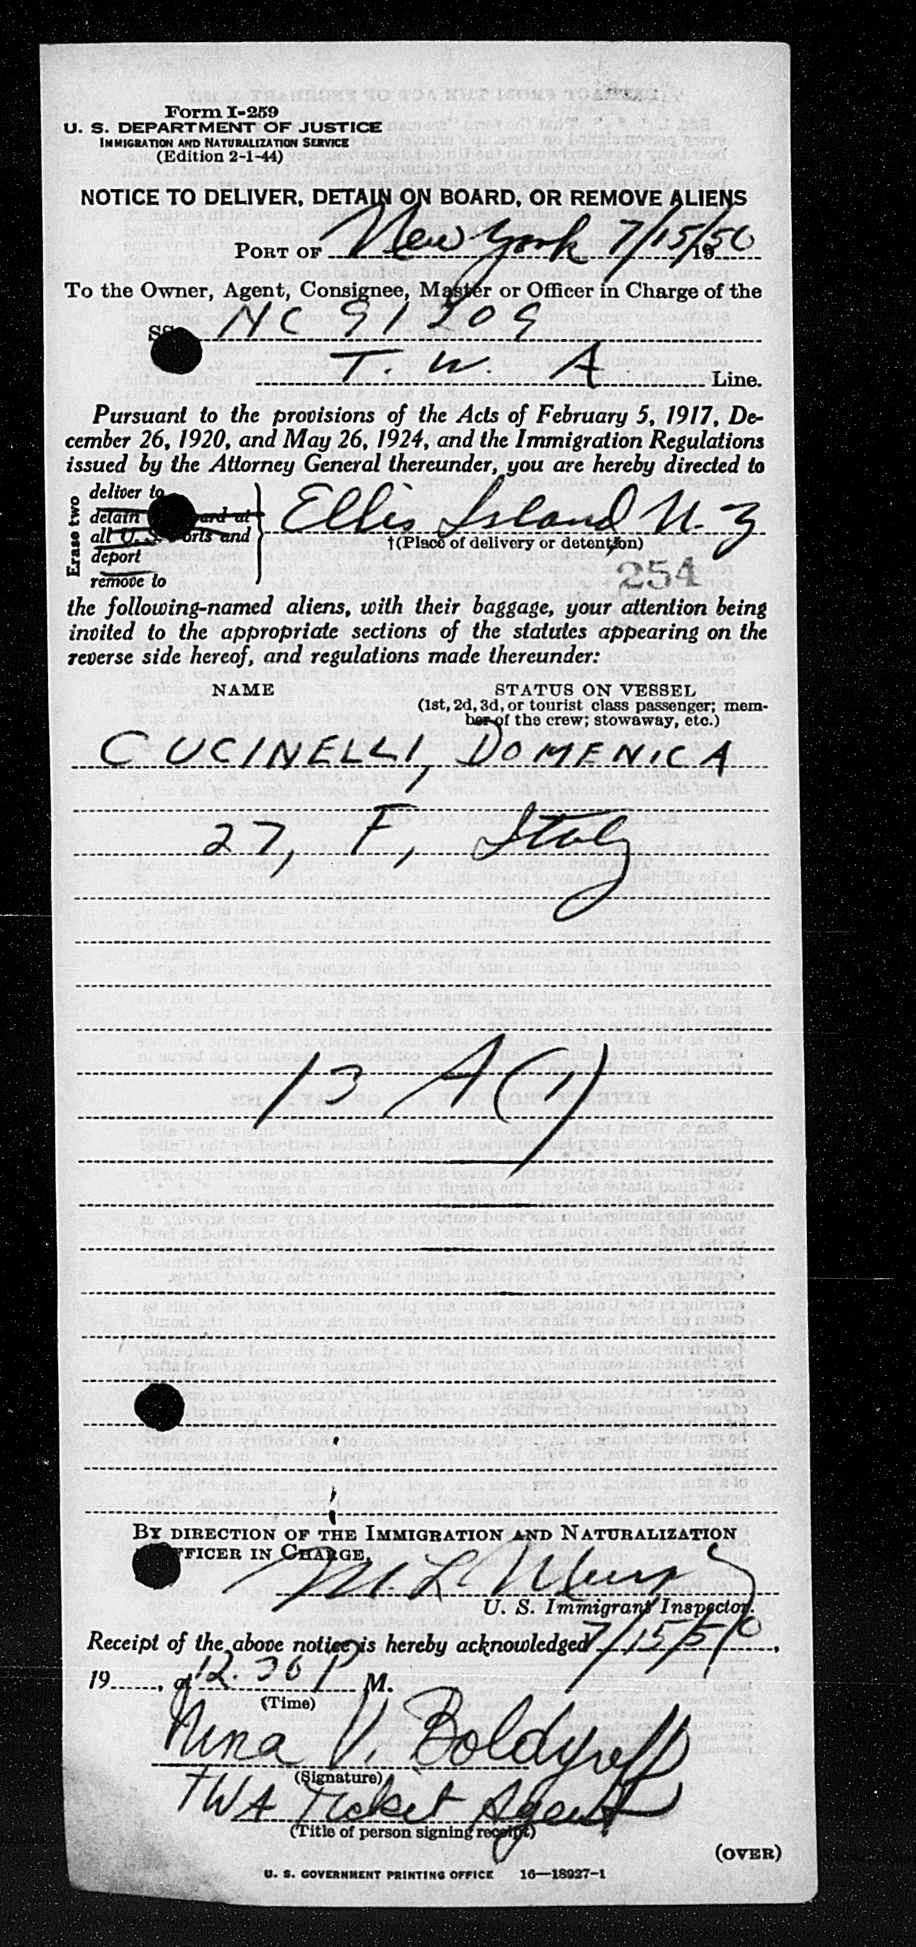 Form I-259
U. S. DEPARTMENT OF JUSTICE
IMMIGRATION AND NATURALIZATION SERVICE
(Edition 2-1-44)
NOTICE TO DELIVER, DETAIN ON BOARD, OR REMOVE ALIENS
PORT OF New York 7/15/1950
To the Owner, Agent, Consignee, Master or Officer in Charge of the
SS NC 91209
T. W. A Line.
Pursuant to the provisions of the Acts of February 5, 1917, De-
cember 26, 1920, and May 26, 1924, and the Immigration Regulations
issued by the Attorney General thereunder, you are hereby directed to
Erase two
deliver to
detain ard at
all U. S. ports and
deport
remove to
Ellis Island N. Y
†(Place of delivery or detention)
254
the following-named aliens, with their baggage, your attention being
invited to the appropriate sections of the statutes appearing on the
reverse side hereof, and regulations made thereunder:
NAME STATUS ON VESSEL
(1st, 2d, 3d, or tourist class passenger; mem-
ber of the crew; stowaway, etc.)
CUCINELLI, DOMENICA
27, F, Italy
13 A (1)
BY DIRECTION OF THE IMMIGRATION AND NATURALIZATION
OFFICER IN CHARGE,
M. L. Murphy
U. S. Immigrant Inspector.
Receipt of the above notice is hereby acknowledged 7/15/50,
19......, at 12.30 P M.
(Time)
Nina V. Boldyreff
(Signature)
TWA Ticket Agent
(Title of person signing receipt)
(OVER)
U. S. GOVERNMENT PRINTING OFFICE 16—18927-1